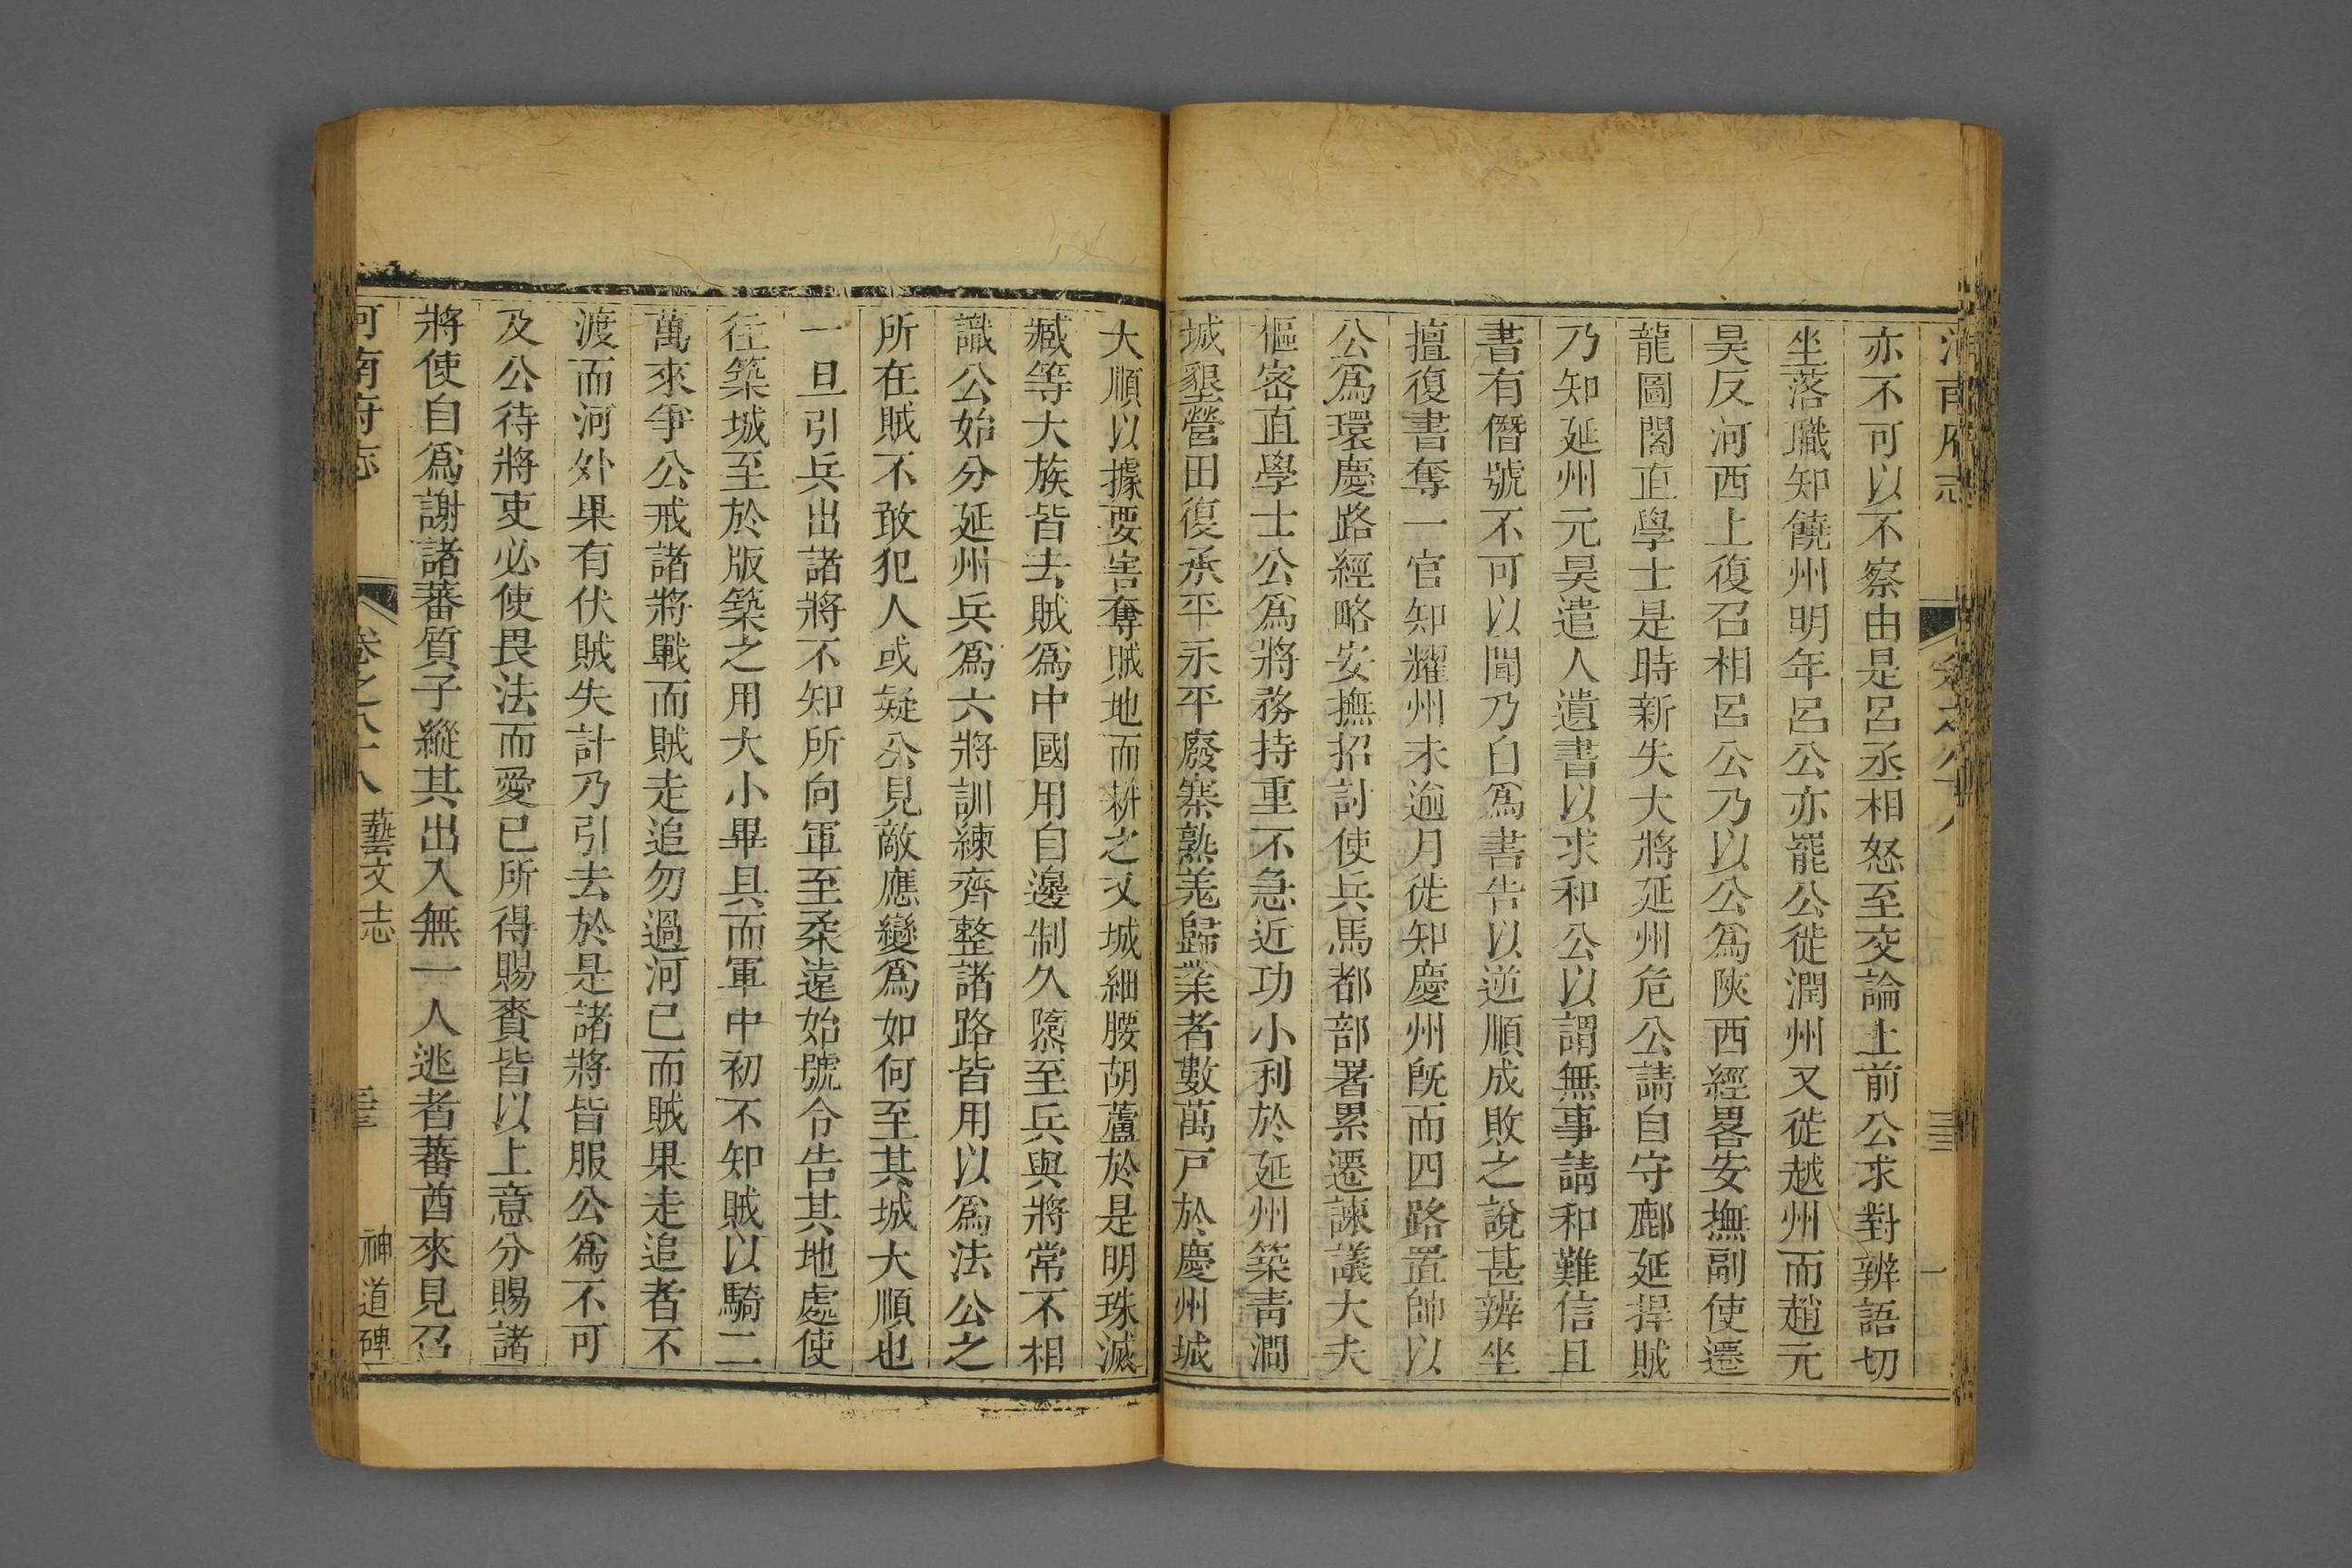 河南府志
亦不可以不察由是呂丞相怒至交論上前公求對辨語切
坐落職知饒州明年呂公亦罷公徙潤州又徙越州而趙元
昊反河西上復召相呂公乃以公爲陝西經畧安撫副使遷
龍圖閣直學士是時新失大將延州危公請自守鄜延捍賊
乃知延州元昊遣人遺書以求和公以謂無事請和難信且
書有僭號不可以聞乃自爲書告以逆順成敗之說甚辨坐
擅復書奪一官知耀州未逾月徙知慶州旣而四路置帥以
公爲環慶路經略安撫招討使兵馬都部署累遷諫議大夫
樞密直學士公爲將務持重不急近功小利於延州築靑澗
城墾營田復承平永平廢寨熟羌歸業者數萬戸於慶州城
大順以據要害奪賊地而耕之又城細腰胡蘆於是明珠滅
臧等大族皆去賊爲中國用自邊制久隳至兵與將常不相
識公始分延州兵爲六將訓練齊整諸路皆用以爲法公之
所在賊不敢犯人或疑公見敵應變爲如何至其城大順也
一旦引兵出諸將不知所向軍至柔遠始號令告其地處使
往築城至於版築之用大小畢具而軍中初不知賊以騎二
萬來爭公戒諸將戰而賊走追勿過河已而賊果走追者不
渡而河外果有伏賊失計乃引去於是諸將皆服公爲不可
及公待將吏必使畏法而愛已所得賜賚皆以上意分賜諸
將使自爲謝諸蕃質子縱其出入無一人逃者蕃酋來見召
河南府志 卷之八十八 藝文志 神道碑